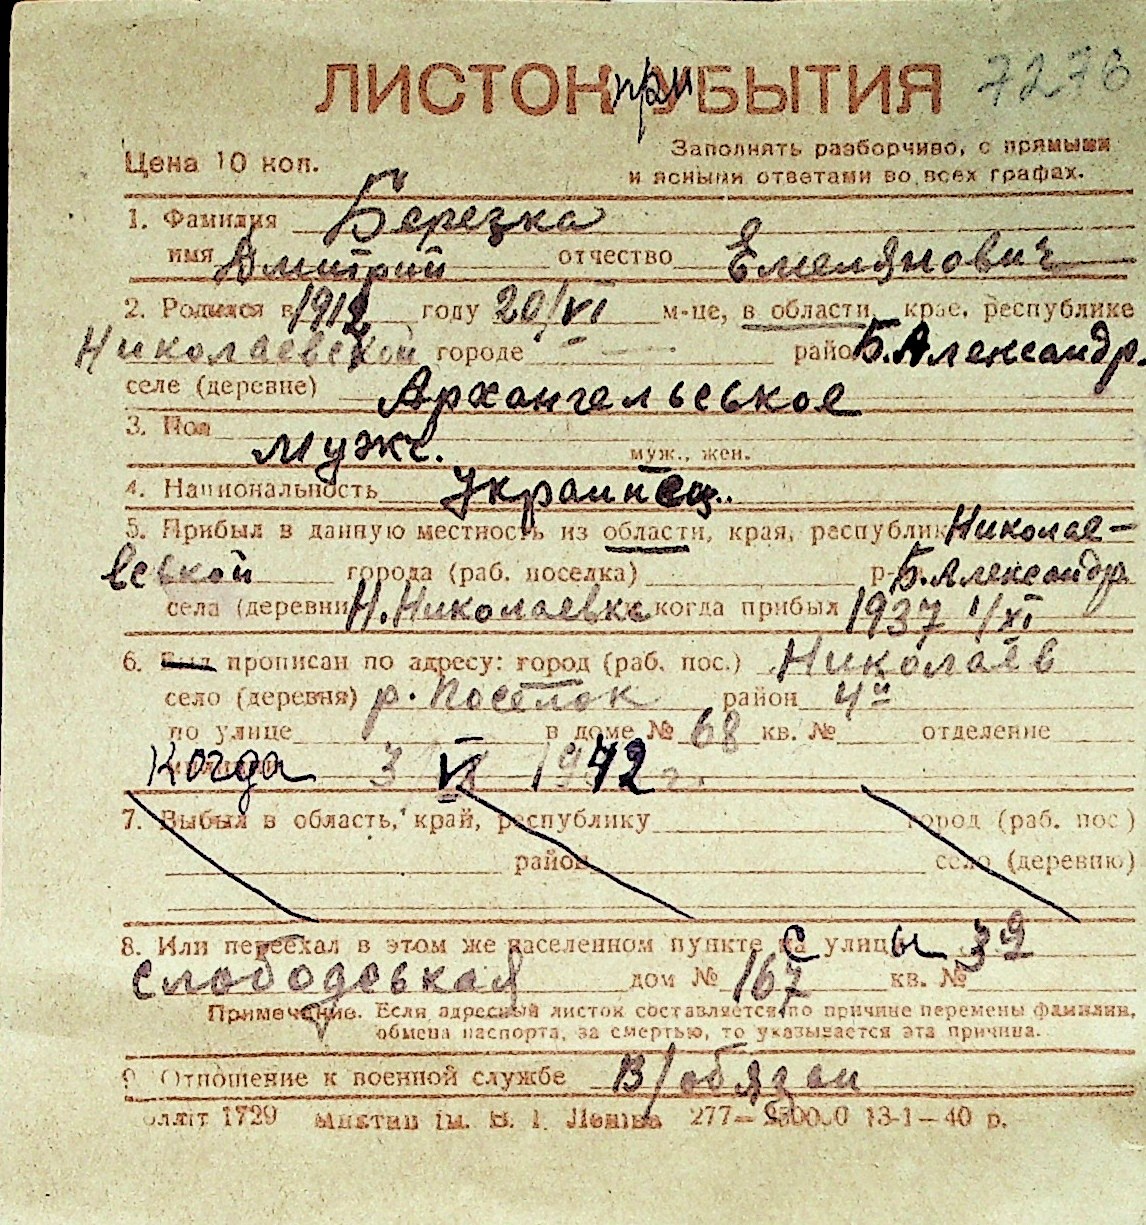 ЛИСТОК при УБЫТИЯ 7276
Цена 10 коп.
Заполнять разборчиво, с прямыми
и ясными ответами во всех графах.
1. Фамилия Березка
имя Дмитрий отчество Емелянович
2. Родился в 1912 году 20/VI м-це, в области, крае, республике
Николаевской городе — район Б. Александр.
селе (деревне) Архангельськое
3. Пол Мужс. муж., жен.
4. Национальность Украинец.
5. Прибыл в данную местность из области, края, республики Николае-
вськой города (раб. поселка) р-н Б. Александр
села (деревни) Н. Николаевка когда прибыл 1937 1/XI
6. Был прописан по адресу: город (раб. пос.) Николаев
село (деревня) р. Поселок район 4й
по улице в доме № 68 кв. № отделение
Когда 3 VI 1942 г.
7. Выбыл в область, край, республику город (раб. пос)
район село (деревню)
8. Или переехал в этом же населенном пункте с улицы 39
Слободськая дом № 167 кв. №
Примечание. Если адресный листок составляется по причине перемены фамилии,
обмена паспорта, за смертью, то указывается эта причина.
9. Отношение к военной службе В/обязан
1729 ім. В. І. Леніна 277— 13-1—40 р.